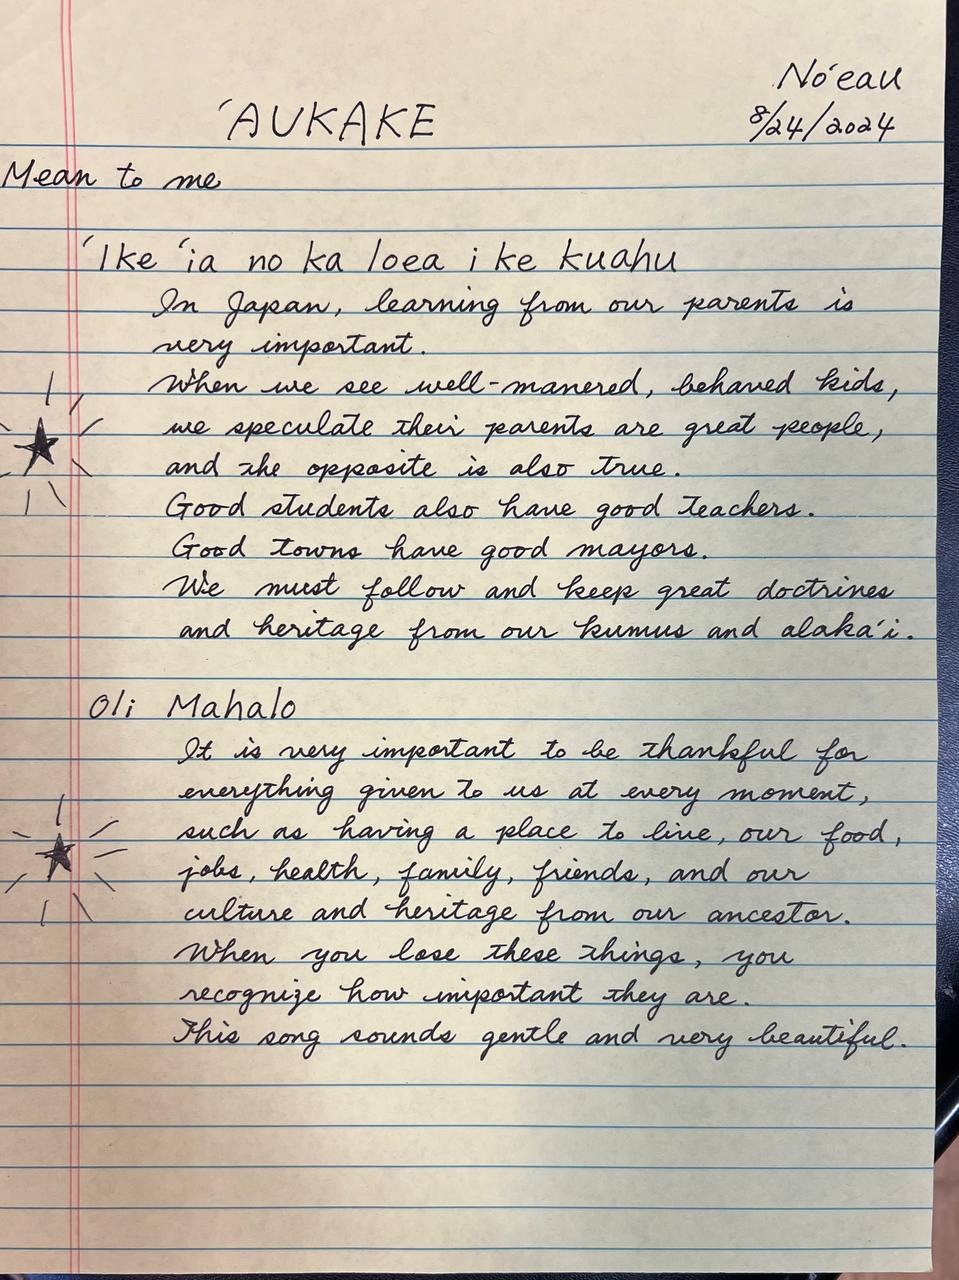 No'eau
'AUKAKE
8/24/2024
Mean to me
'Ike 'ia no ka loea i ke kuahu
In Japan, learning from our parents is
very important.
When we see well-manered, behaved kids,
we speculate their parents are great people,
and the opposite is also true.
Good students also have good teachers.
Good towns have good mayors.
We must follow and keep great doctrines
and heritage from our kumus and alaka'i.
Oli Mahalo
It is very important to be thankful for
everything given to us at every moment,
such as having a place to live, our food,
jobs, health, family, friends, and our
culture and heritage from our ancestor.
When you lose these things, you
recognize how important they are.
This song sounds gentle and very beautiful.